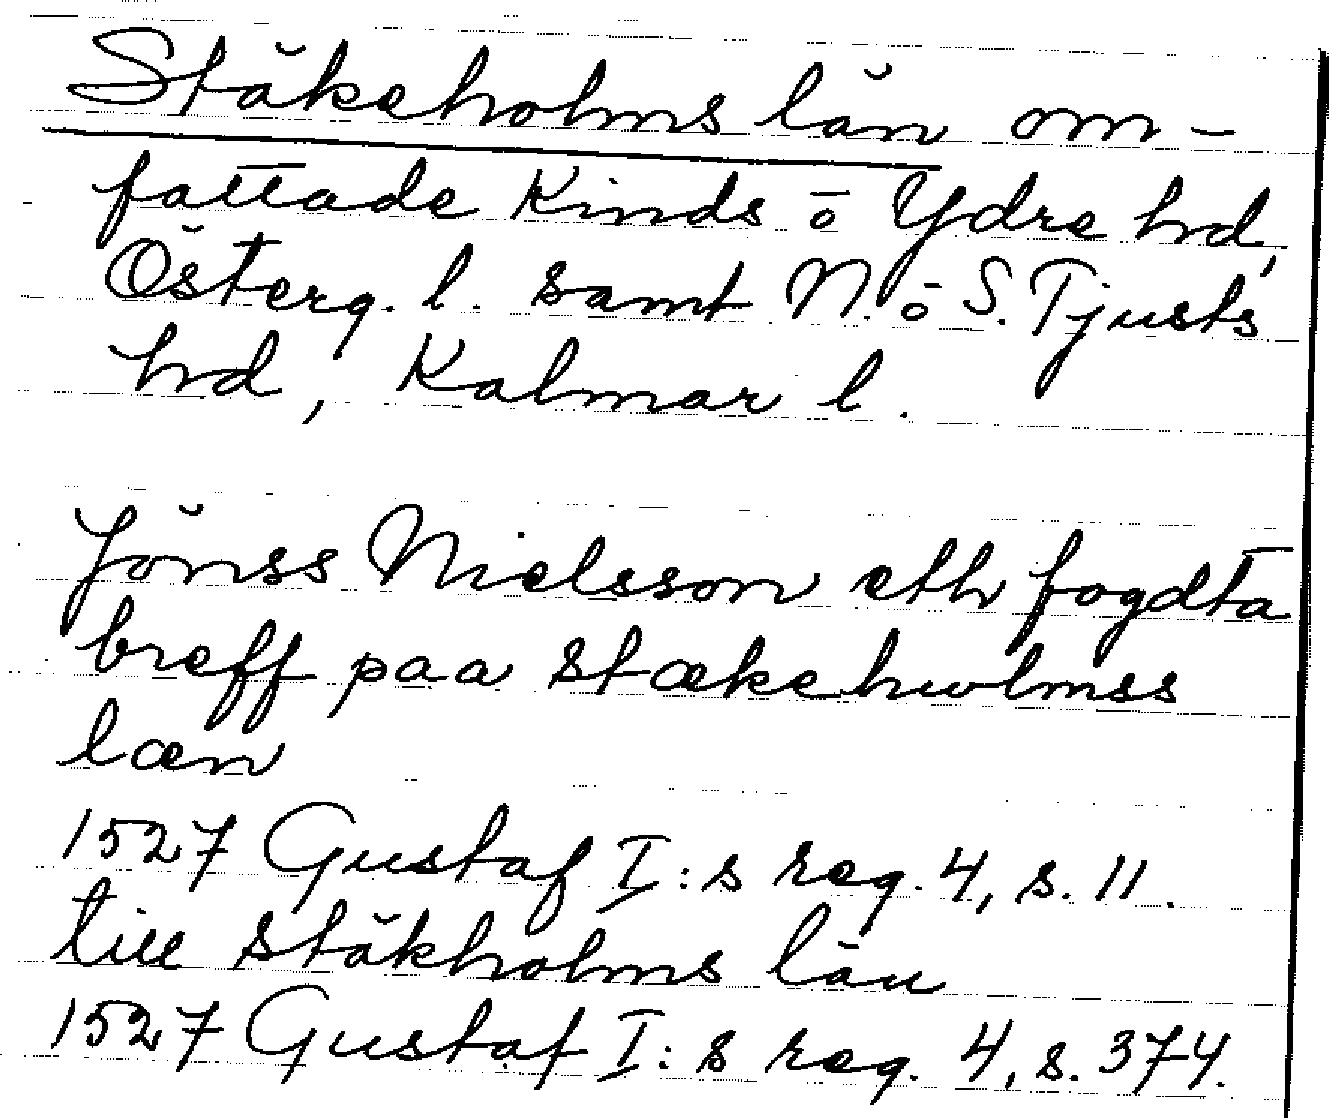 Stäkeholms län om-
fattade Kinds o Ydre hrd,
Österg. l. samt N. o S. Tjusts
hrd, Kalmar l.
Jönss Nielsson eth fogdta
breff paa Stækehwlmss
læn
1527 Gustaf I:s reg. 4, s. 11.
till Stäkholms län
1527 Gustaf I:s reg. 4, s. 374.